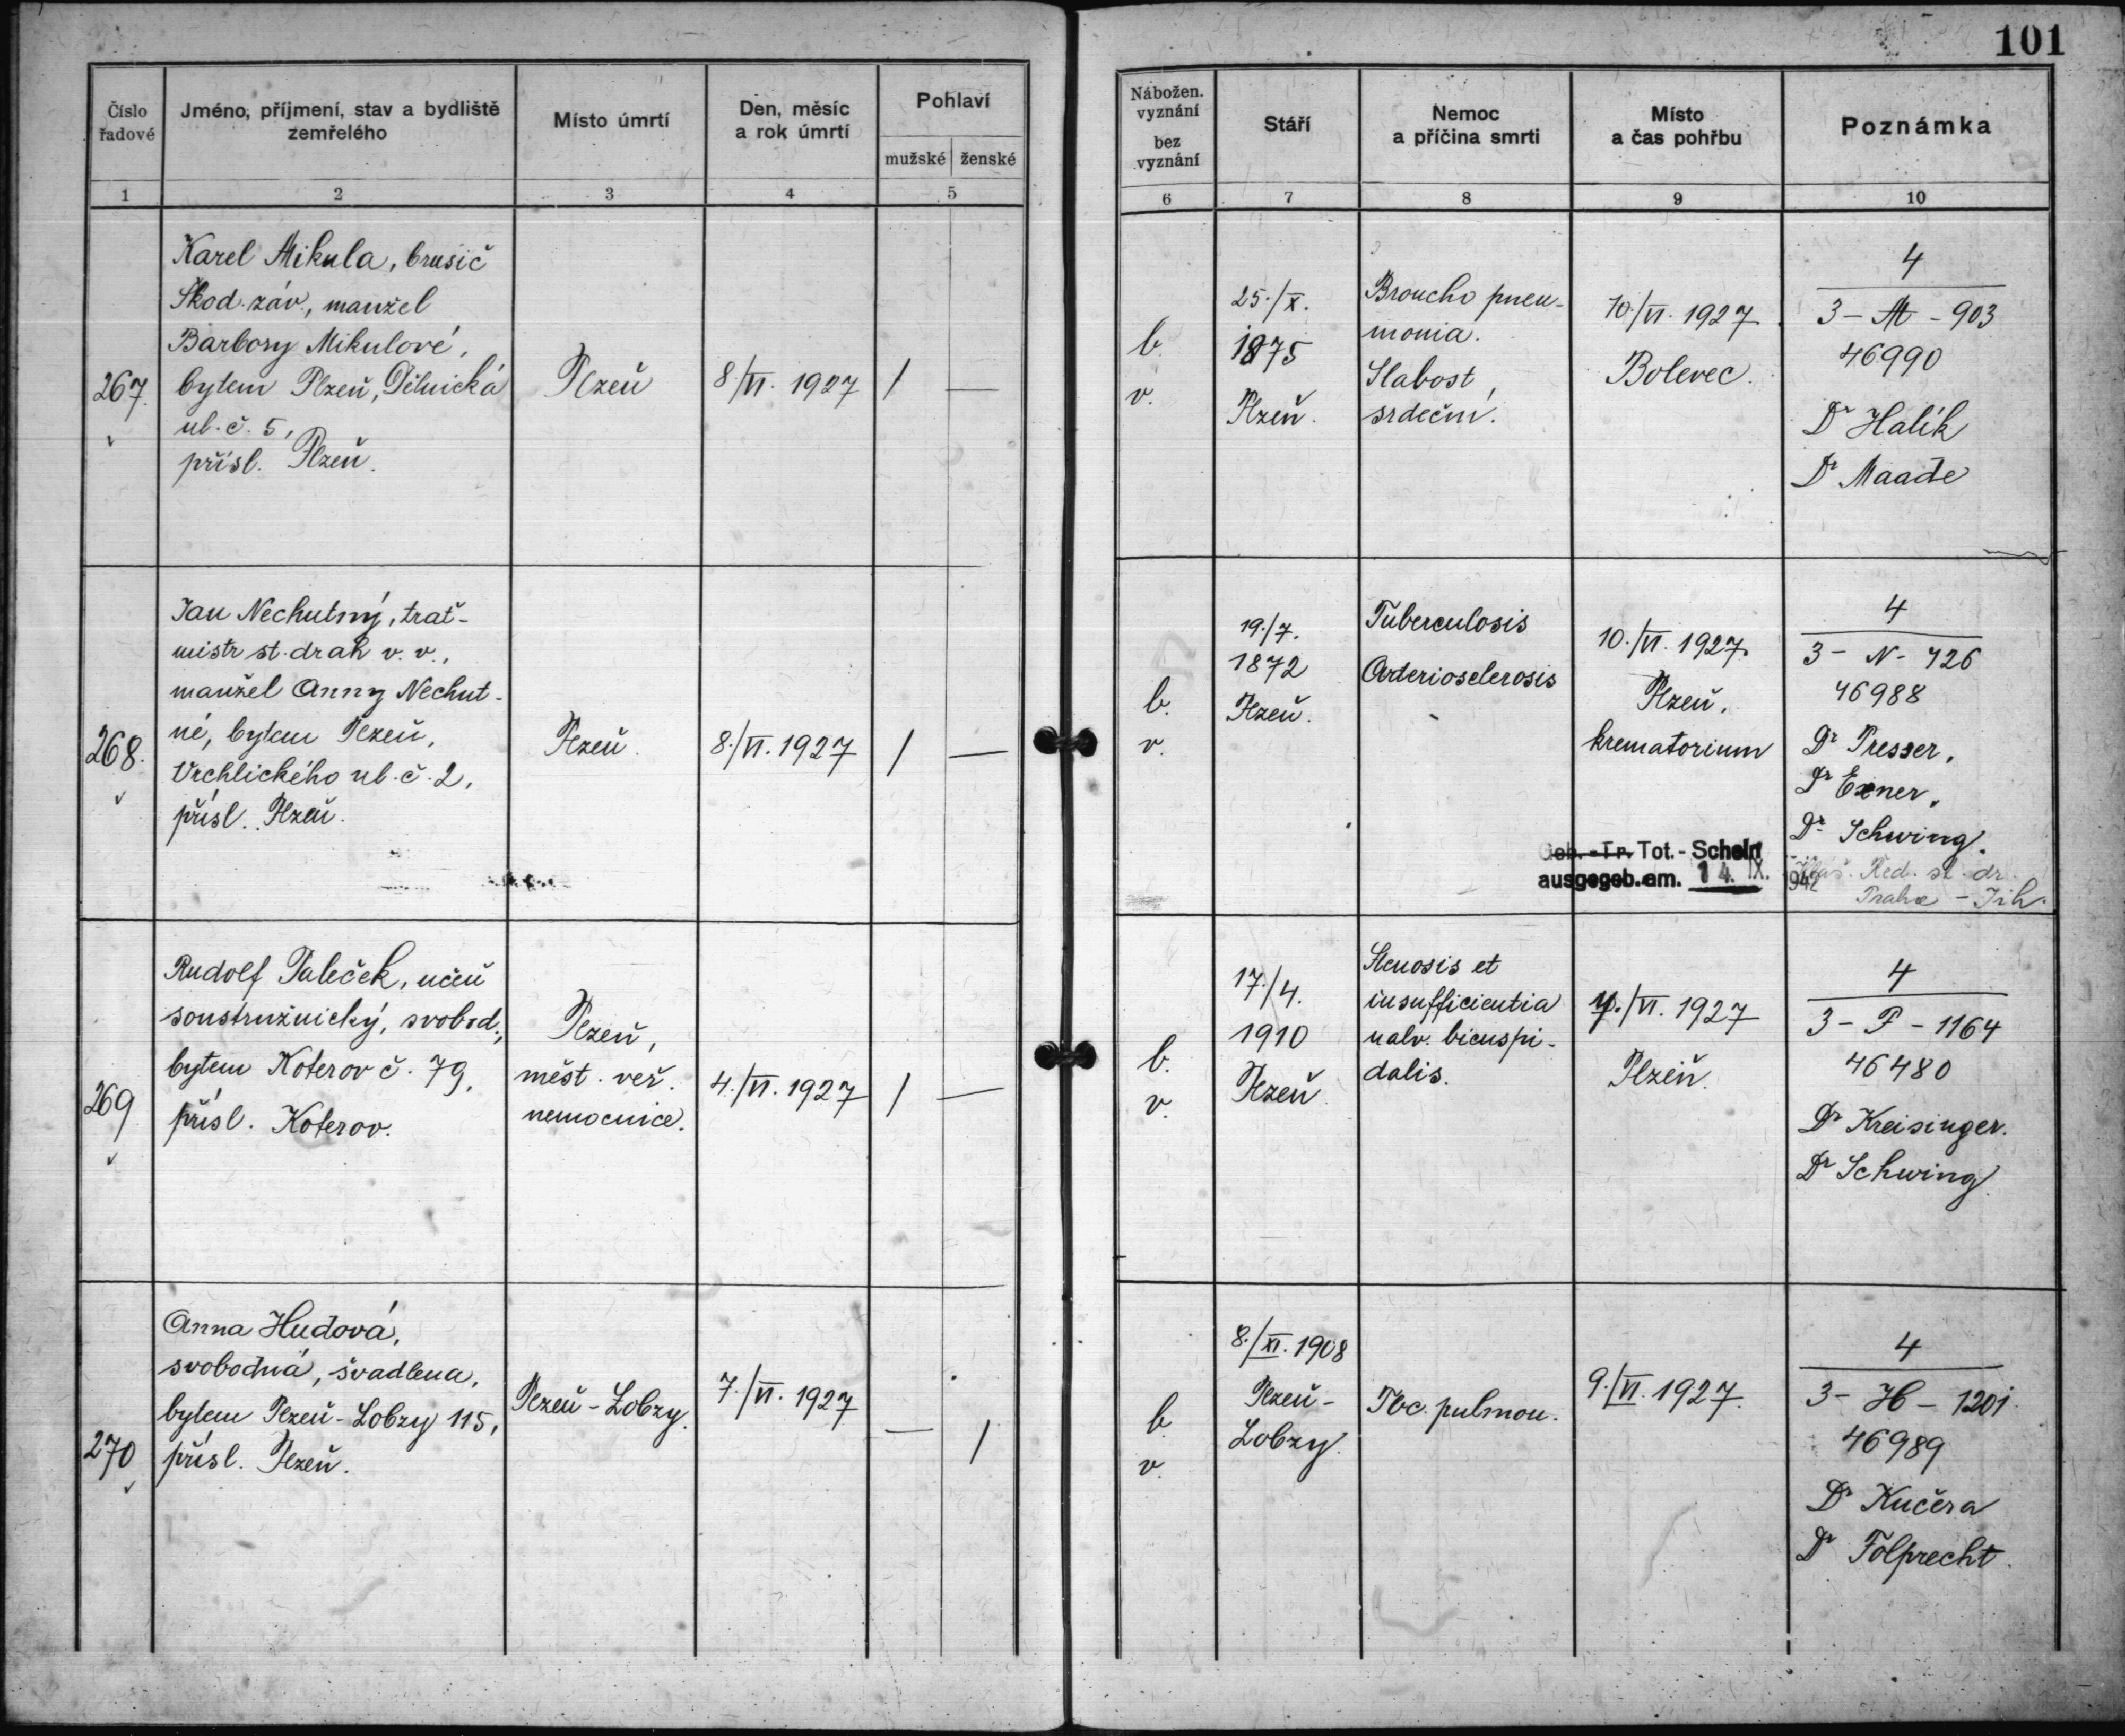 101
Číslo řadové
Jméno, příjmení, stav a bydliště zemřelého
Místo úmrtí
Den, měsíc a rok úmrtí
Pohlaví
mužské ženské
Nábožen. vyznání
bez vyznání
Stáří
Nemoc a příčina smrti
Místo a čas pohřbu
Poznámka
1 2 3 4 5 6 7 8 9 10
267.
Karel Mikula, brusič
Škod. záv., manžel
Barbory Mikulové,
bytem Plzeň, Dělnická
ul. č. 5,
přísl. Plzeň.
Plzeň
8./VI. 1927
/ —
b.
v.
25./X.
1875
Plzeň.
Broncho pneu-
monia.
Slabost
srdeční.
10./VI. 1927.
Bolevec.
4
3 - M - 903
46990
Dr Halík
Dr Maade
268.
Jan Nechutný, trať-
mistr st. drah v. v.,
manžel Anny Nechut-
né, bytem Plzeň,
Vrchlického ul. č. 2,
přísl. Plzeň.
Plzeň.
8./VI. 1927
/ —
b.
v.
19./7.
1872
Plzeň.
Tuberculosis
Arteriosclerosis
10./VI. 1927.
Plzeň,
krematorium
Geb.-Tr. Tot.-Schein
ausgegeb. am. 14. IX. 942
4
3 - N - 726
46988
Dr Presser,
Dr Exner,
Dr Schwing.
Řed. st. dr.
Praha - Jih.
269
Rudolf Paleček, učeň
soustružnický, svobod.,
bytem Koterov č. 79,
přísl. Koterov.
Plzeň,
měst. veř.
nemocnice.
4./VI. 1927
/ —
b.
v.
17./4.
1910
Plzeň
Stenosis et
insufficientia
valv. bicuspi-
dalis.
7./VI. 1927
Plzeň.
4
3 - P - 1164
46480
Dr Kreisinger.
Dr Schwing.
270
Anna Hudová,
svobodná, švadlena,
bytem Plzeň - Lobzy 115,
přísl. Plzeň.
Plzeň - Lobzy.
7./VI. 1927
— /
b.
v.
8./XI. 1908
Plzeň -
Lobzy.
Tbc. pulmon.
9./VI. 1927.
4
3 - H - 1201
46989
Dr Kučera
Dr Folprecht.